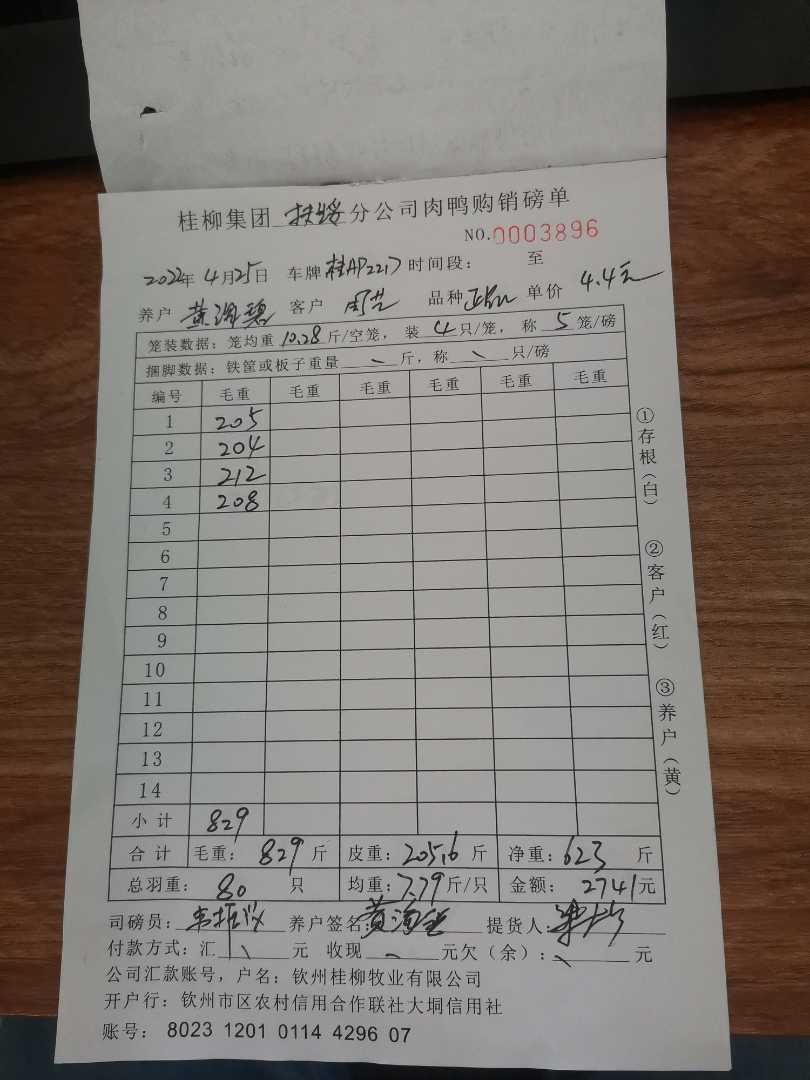 桂柳集团 扶绥 分公司肉鸭购销磅单
NO.0003896
2022年4月25日 车牌 桂AP2217 时间段： 至
养户 黄 客户 周 品种 单价 4.4元
笼装数据：笼均重 10.28 斤/空笼，装 4 只/笼，称 5 笼/磅
捆脚数据：铁筐或板子重量 \ 斤，称 \ 只/磅
编号 毛重 毛重 毛重 毛重 毛重 毛重
1 205
2 204
3 212
4 208
5
6
7
8
9
10
11
12
13
14
小计 829
合计 毛重：829 斤 皮重：205.6 斤 净重：623 斤
总羽重：80 只 均重：7.79 斤/只 金额：2741 元
司磅员：韦振 养户签名：黄 提货人：
付款方式：汇 \ 元 收现 \ 元欠（余）：\ 元
公司汇款账号，户名：钦州桂柳牧业有限公司
开户行：钦州市区农村信用合作联社大垌信用社
账号：8023 1201 0114 4296 07
①存根（白） ②客户（红） ③养户（黄）